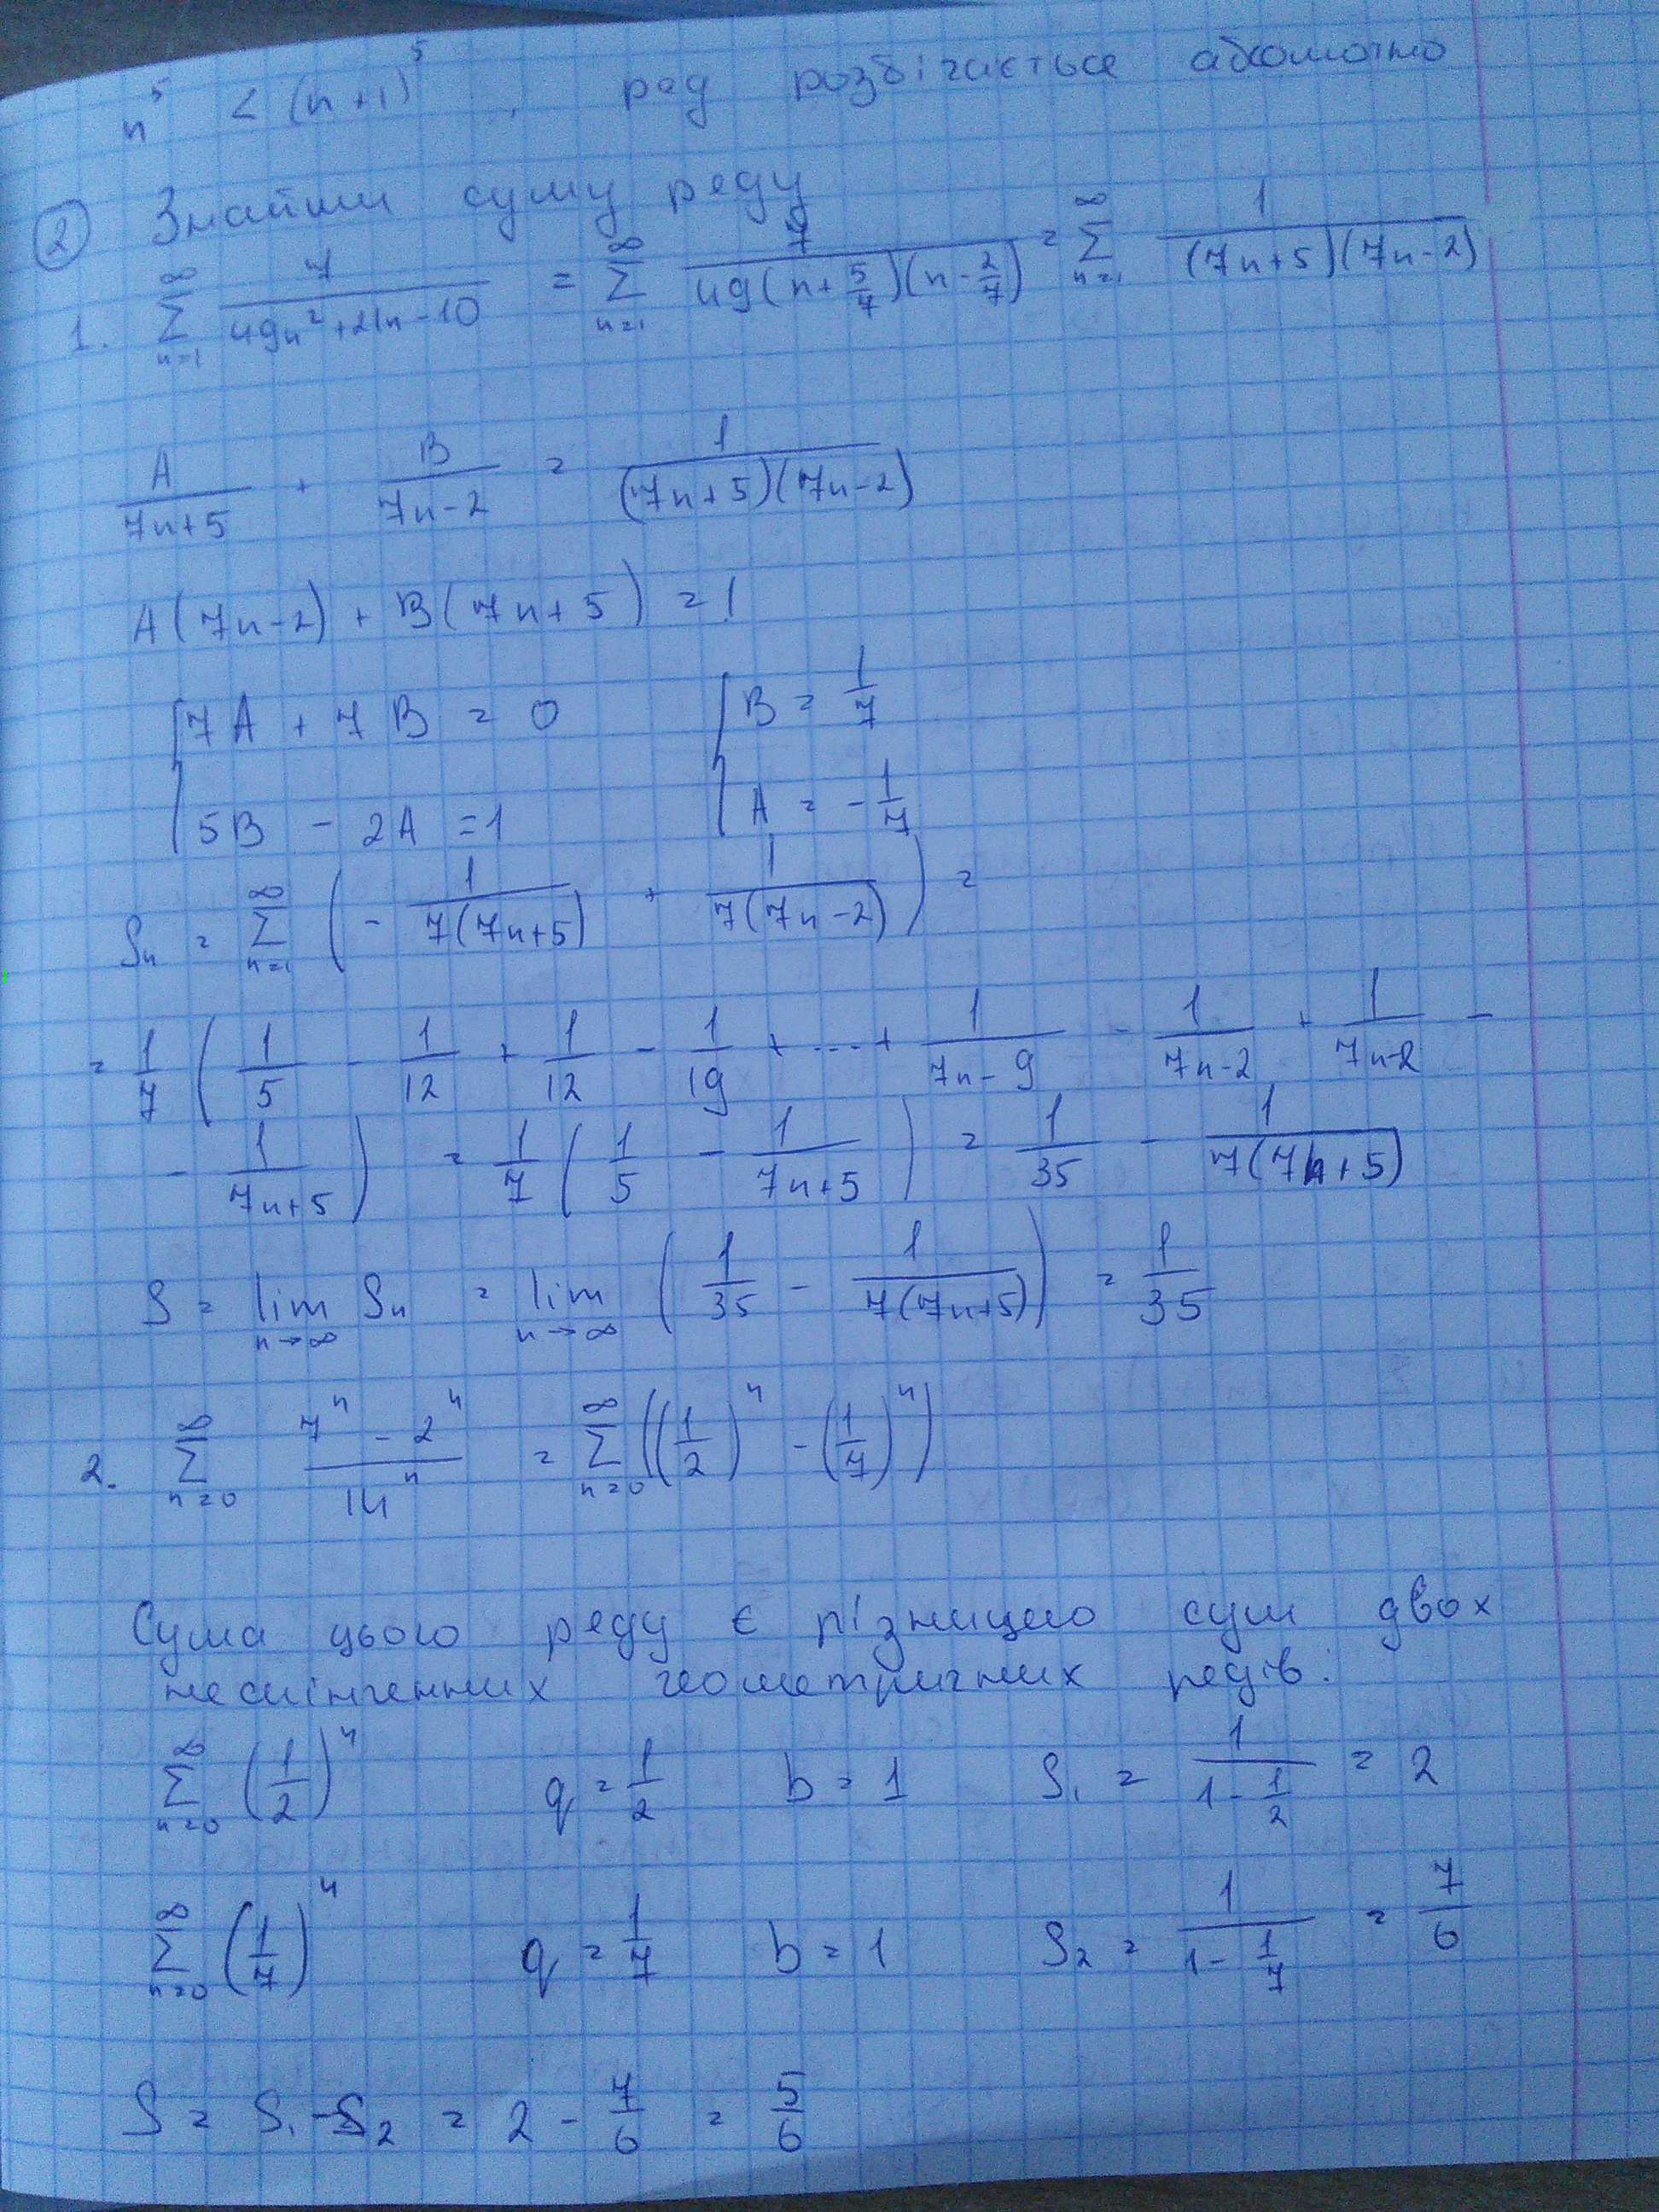 n⁵ < (n+1)⁵ , ряд розбігається абсолютно
② Знайти суму ряду
1. ∑_{n=1}^{∞} 7/(49n²+21n-10) = ∑_{n=1}^{∞} 7/(49(n+5/7)(n-2/7)) = ∑_{n=1}^{∞} 1/((7n+5)(7n-2))
A/(7n+5) + B/(7n-2) = 1/((7n+5)(7n-2))
A(7n-2) + B(7n+5) = 1
{ 7A + 7B = 0 { B = 1/7
5B - 2A = 1 A = -1/7
Sₙ = ∑_{n=1}^{∞} ( - 1/(7(7n+5)) + 1/(7(7n-2)) ) =
= 1/7 ( 1/5 - 1/12 + 1/12 - 1/19 + ... + 1/(7n-9) - 1/(7n-2) + 1/(7n-2) -
- 1/(7n+5) ) = 1/7 ( 1/5 - 1/(7n+5) ) = 1/35 - 1/(7(7n+5))
S = lim_{n→∞} Sₙ = lim_{n→∞} ( 1/35 - 1/(7(7n+5)) ) = 1/35
2. ∑_{n=0}^{∞} (7ⁿ - 2ⁿ)/14ⁿ = ∑_{n=0}^{∞} ((1/2)ⁿ - (1/7)ⁿ)
Сума цього ряду є різницею сум двох
нескінченних геометричних рядів:
∑_{n=0}^{∞} (1/2)ⁿ q = 1/2 b = 1 S₁ = 1/(1 - 1/2) = 2
∑_{n=0}^{∞} (1/7)ⁿ q = 1/7 b = 1 S₂ = 1/(1 - 1/7) = 7/6
S = S₁ - S₂ = 2 - 7/6 = 5/6